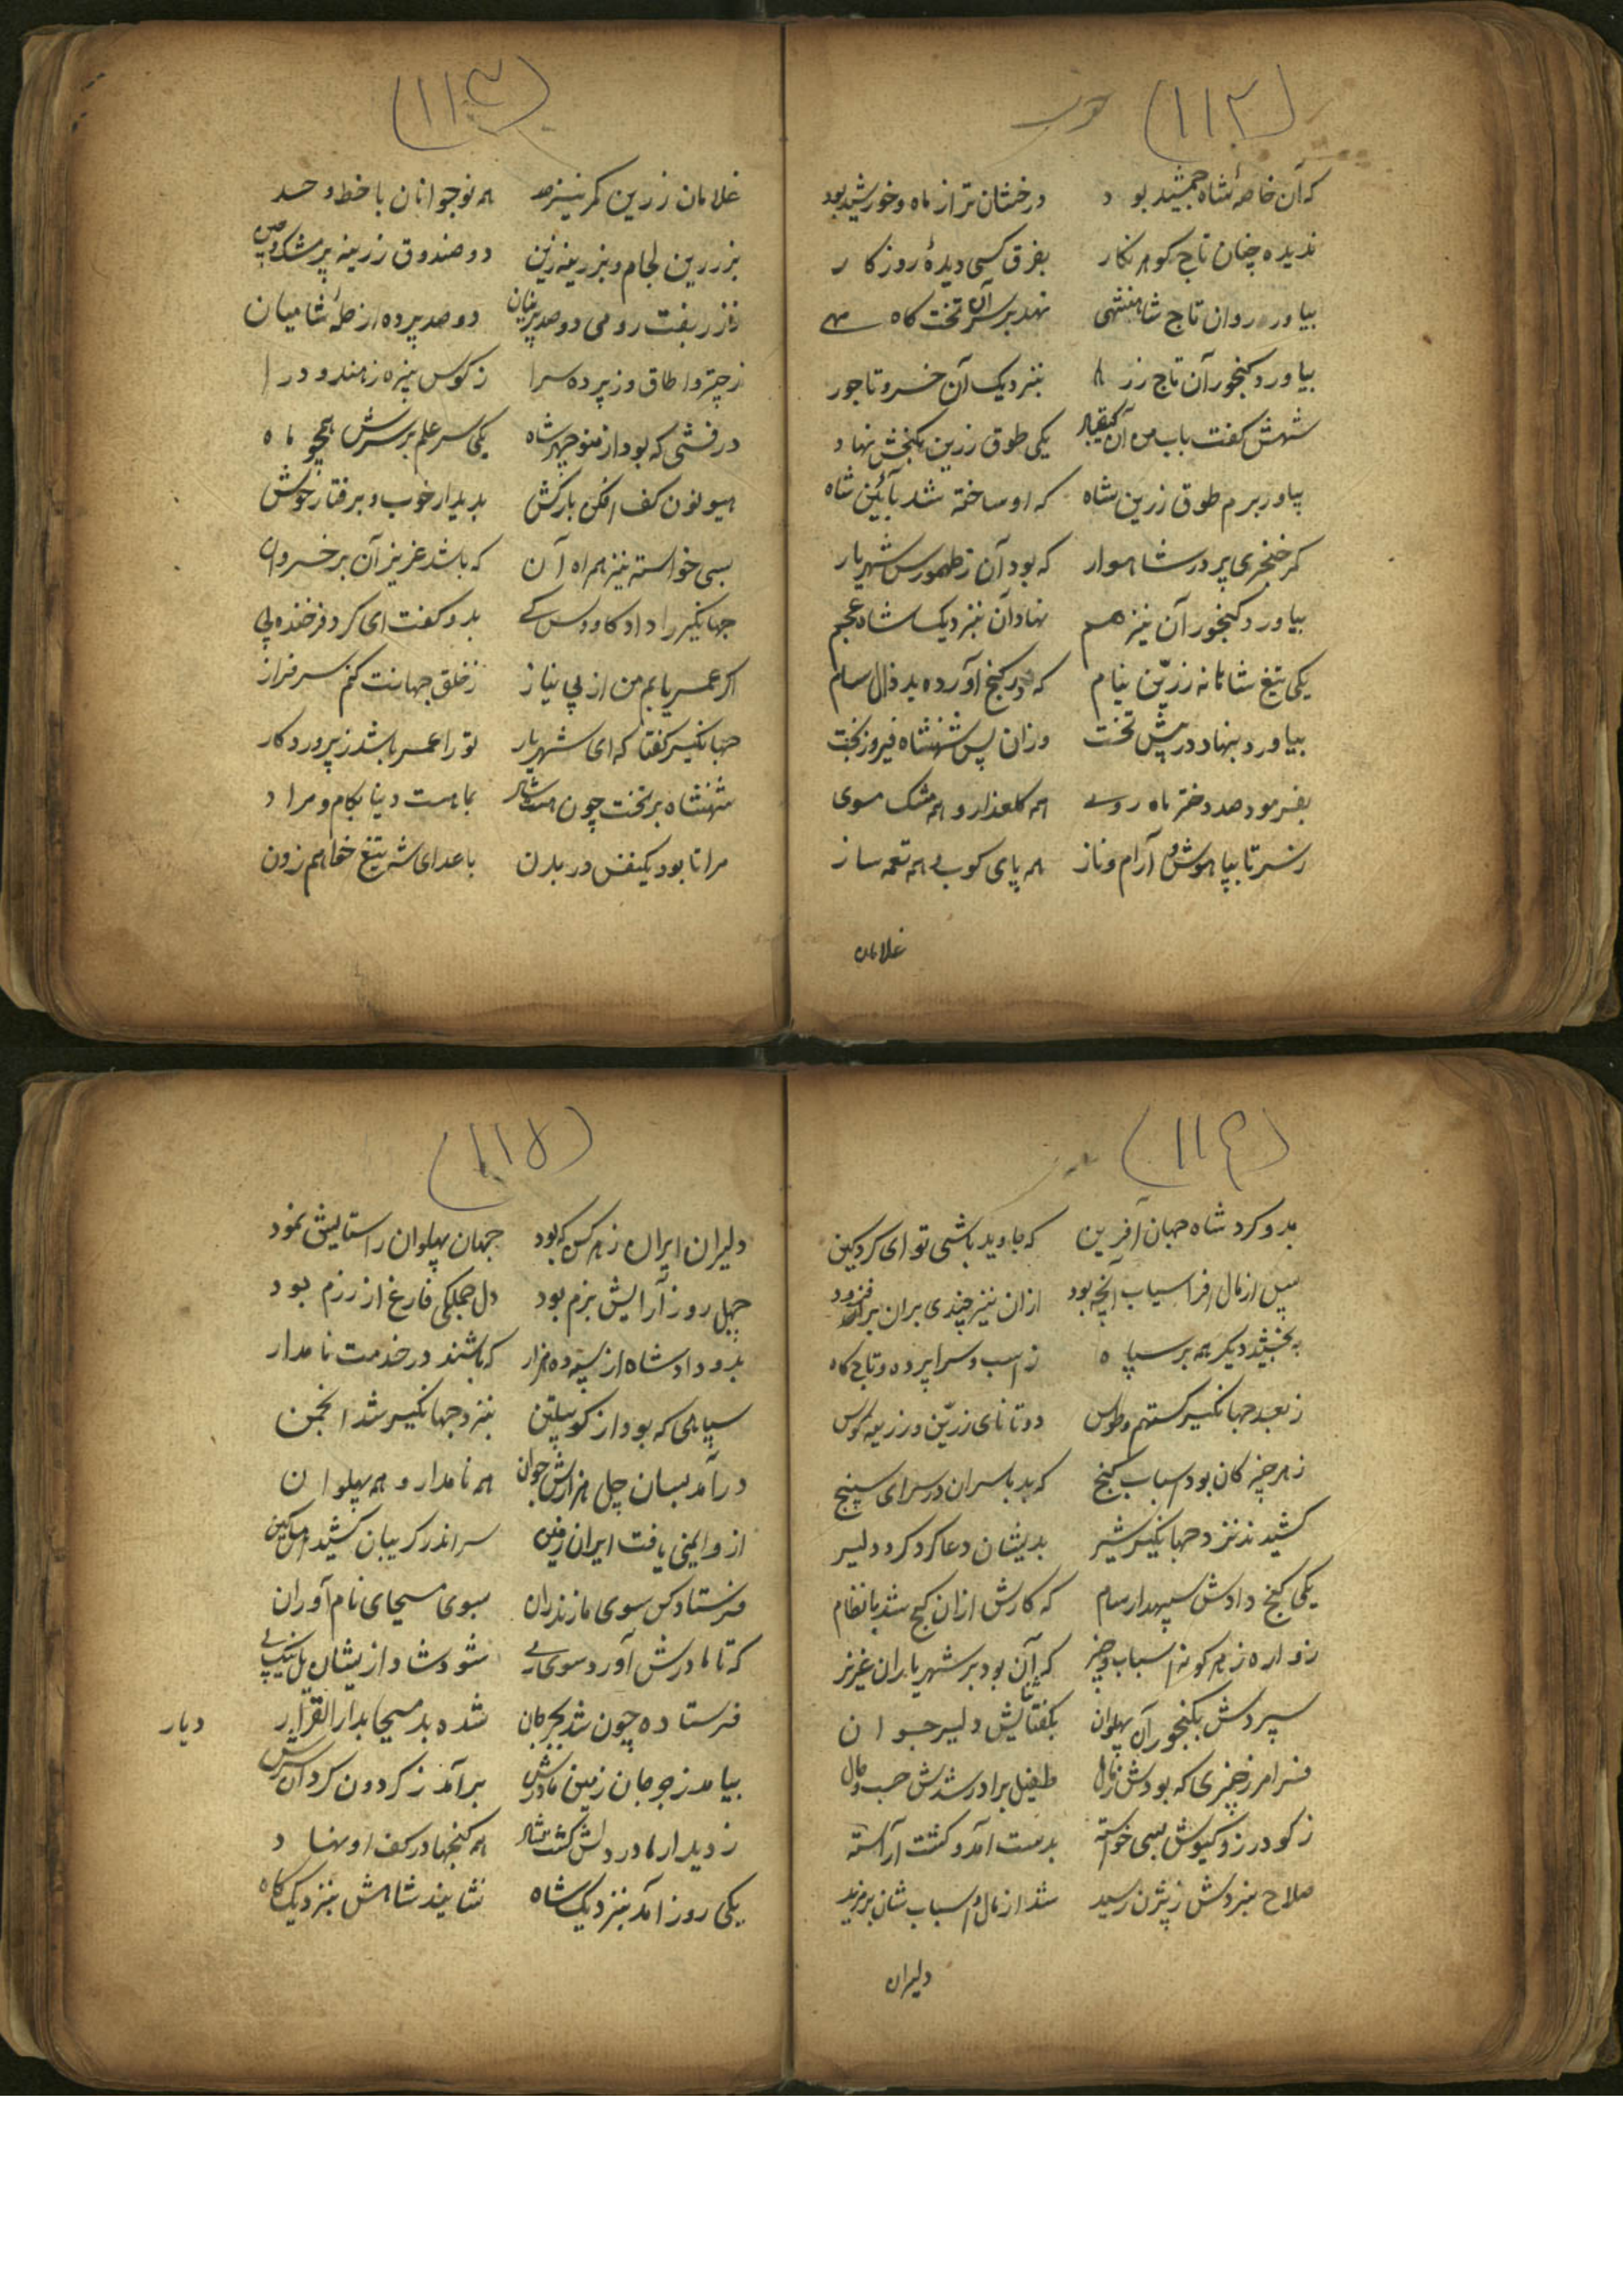 (۱۱۲)
که آن خاصهٔ شاه جمشید بود درخشان تر از ماه و خورشید بود
ندیده چنان تاج کوهر نکار بفرق کسی دیدهٔ روزکار
بیاور روان تاج شاهنشهی نهد بر سر آن تخت کاه مهی
بیاورد کنجور آن تاج زر بنزدیک آن خسرو تاجور
شهش کفت باب من آن کیقباد یکی طوق زرین بکنجش نهاد
بیاور برم طوق زرین شاه که او ساخته شد بآئین شاه
کمر خنجری پر در شاهوار که بود آن ز طهمورس شهریار
بیاورد کنجور آن نیز هم نهاد آن بنزدیک شاه عجم
یکی تیغ شاهانه زرّین نیام که در کنج آورده بد زال سام
بیاورد بنهاد در پیش تخت وزان پس شهنشاه فیروز بخت
بفرمود صد دختر ماه روی همه کلعذار و همه مشک موی
ز سر تا بپا هوش و آرام و ناز همه پای کوب و همه نغمه ساز
غلامان
(۱۱۳)
غلامان زرین کمر نیز صد همه نوجوانان با خط و خد
بزرین لجام و بزرینه زین دو صندوق زرینه پر مشک چین
ز زربفت رومی دو صد پرنیان دو صد پرده از حلهٔ شامیان
ز چتر و اطاق و ز پرده سرا ز کوس نبیره ز هندو درا
درفشی که بود از منوچهر شاه یکی سر علم بر سرش همچو ماه
هیونون کف افکن بارکش بدیدار خوب و برفتار خوش
بسی خواسته نیز همراه آن که باشد عزیز آن بر خسروان
جهانکیر را داد کاووس کی بدو کفت ای کرد فرخنده پی
اکر عمر یابم من از بی نیاز ز خلق جهانت کنم سرفراز
جهانکیر کفتا که ای شهریار تو را عمر باشد ز پروردکار
شهنشاه بر تخت چون هست شاد بماهست دنیا بکام و مراد
مرا تا بود یکنفس در بدن باعدای شه تیغ خواهم زدن
(۱۱۴)
بدو کرد شاه جهان آفرین که جاوید باشی تو ای کرد کین
پس از مال افراسیاب آنچه بود ازان نیز چندی بران بر فزود
ببخشید دیکر همه بر سپاه ز اسب و سراپرده و تاج کاه
ز بعد جهانکیر کستهم و طوس دو تا نای زرّین و زرینه کوس
ز هر چیز کان بود اسباب کنج که بد با سران در سرای سپنج
کشیدند نزد جهانکیر شیر بدیشان دعا کرد کرد دلیر
یکی کنج دادش سپهدار سام که کارش ازان کنج شد با نظام
زواره ز هر کونه اسباب و چیز که آن بود بر شهریاران عزیز
سپردش بکنجور آن پهلوان بکفتا ثنایش دلیر جوان
فرامرز چیزی که بودش ز مال طفیل برادر شدش حسب حال
ز کودرز و کیوش بسی خواسته بدست آمد و کشت آراسته
صلاح نبردش ز بیژن رسید شد از مال و اسباب شان بر مزید
دلیران
(۱۱۵)
دلیران ایران ز هر کس که بود جهان پهلوان را ستایش نمود
چهل روز آرایش بزم بود دل جملکی فارغ از رزم بود
بدو داد شاه از سپه ده هزار که باشند در خدمت نامدار
سپاهی که بود از کو پیلتن بنزد جهانکیر شد انجمن
درآمد بسان چل هزارش جوان همه نامدار و همه پهلوان
ازو ایمنی یافت ایران زمین سر اندر کریبان کشید اهل کین
فرستاد کس سوی مازندران بسوی مسیحای نام آوران
که تا مادرش آورد سوی ری شود شاد ازیشان یل نیک پی
فرستاده چون شد بجرجان شده بد مسیحا بدار القرار
دیار
بیامد ز جرجان زمین مادرش برآمد ز کردون کردان سرش
ز دیدار مادر دلش کشت شاد همه کنجها در کف او نهاد
یکی روز آمد بنزدیک شاه نشانید شاهش بنزدیک کاه